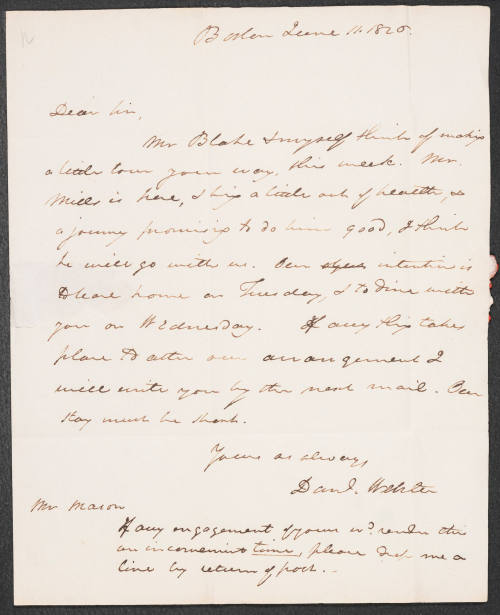 Boston June 11. 1826.
Dear Sir,
Mr Blake & myself think of making
a little tour your way, this week. Mr.
Mills is here, & being a little out of health, &
a journey promising to do him good, I think
he will go with us. Our intention is
to leave home on Tuesday, & to dine with
you on Wednesday. If any thing takes
place to alter our arrangement I
will write you by the next mail. Our
stay must be short.
Yours as always
Danl. Webster
Mr Mason
If any engagement of yours wd. render this
an inconvenient time, please drop me a
line by return of post.